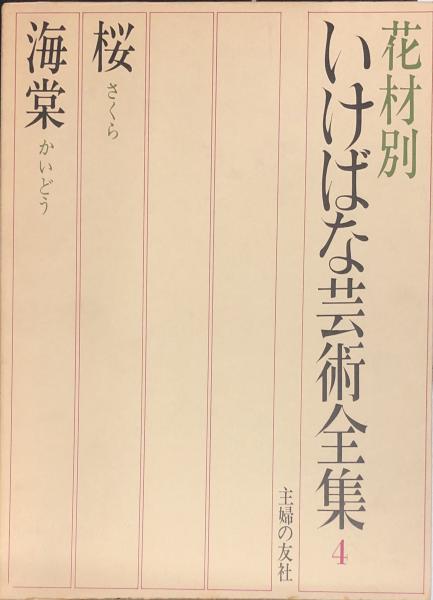 花材別
いけばな芸術全集4
主婦の友社
桜 さくら
海棠 かいどう